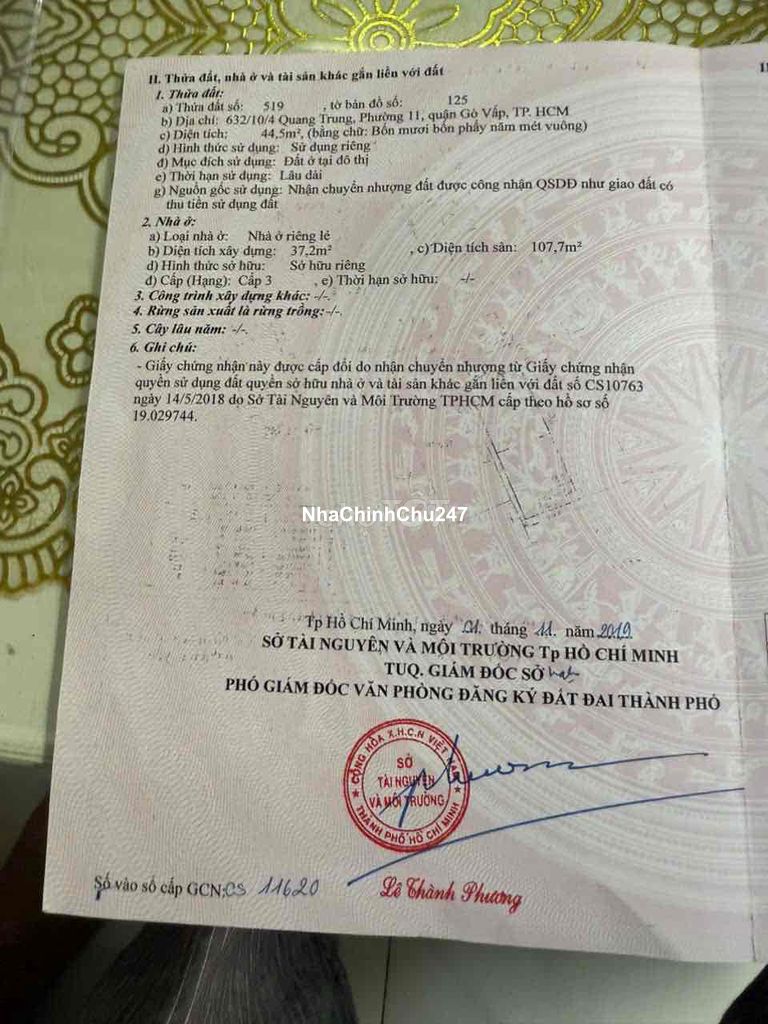 II. Thửa đất, nhà ở và tài sản khác gắn liền với đất
1. Thửa đất:
a) Thửa đất số: 519 , tờ bản đồ số: 125
b) Địa chỉ: 632/10/4 Quang Trung, Phường 11, quận Gò Vấp, TP. HCM
c) Diện tích: 44,5m², (bằng chữ: Bốn mươi bốn phẩy năm mét vuông)
d) Hình thức sử dụng: Sử dụng riêng
đ) Mục đích sử dụng: Đất ở tại đô thị
e) Thời hạn sử dụng: Lâu dài
g) Nguồn gốc sử dụng: Nhận chuyển nhượng đất được công nhận QSDĐ như giao đất có
thu tiền sử dụng đất
2. Nhà ở:
a) Loại nhà ở: Nhà ở riêng lẻ
b) Diện tích xây dựng: 37,2m² , c) Diện tích sàn: 107,7m²
d) Hình thức sở hữu: Sở hữu riêng
đ) Cấp (Hạng): Cấp 3 , e) Thời hạn sở hữu: -/-
3. Công trình xây dựng khác: -/-.
4. Rừng sản xuất là rừng trồng: -/-.
5. Cây lâu năm: -/-.
6. Ghi chú:
- Giấy chứng nhận này được cấp đổi do nhận chuyển nhượng từ Giấy chứng nhận
quyền sử dụng đất quyền sở hữu nhà ở và tài sản khác gắn liền với đất số CS10763
ngày 14/5/2018 do Sở Tài Nguyên và Môi Trường TPHCM cấp theo hồ sơ số
19.029744.
NhaChinhChu247
Tp Hồ Chí Minh, ngày 01. tháng 11. năm 2019
SỞ TÀI NGUYÊN VÀ MÔI TRƯỜNG Tp HỒ CHÍ MINH
TUQ. GIÁM ĐỐC SỞ
PHÓ GIÁM ĐỐC VĂN PHÒNG ĐĂNG KÝ ĐẤT ĐAI THÀNH PHỐ
CỘNG HÒA X.H.C.N VIỆT NAM
SỞ
TÀI NGUYÊN
VÀ MÔI TRƯỜNG
THÀNH PHỐ HỒ CHÍ MINH
Số vào sổ cấp GCN: CS 11620
Lê Thành Phương